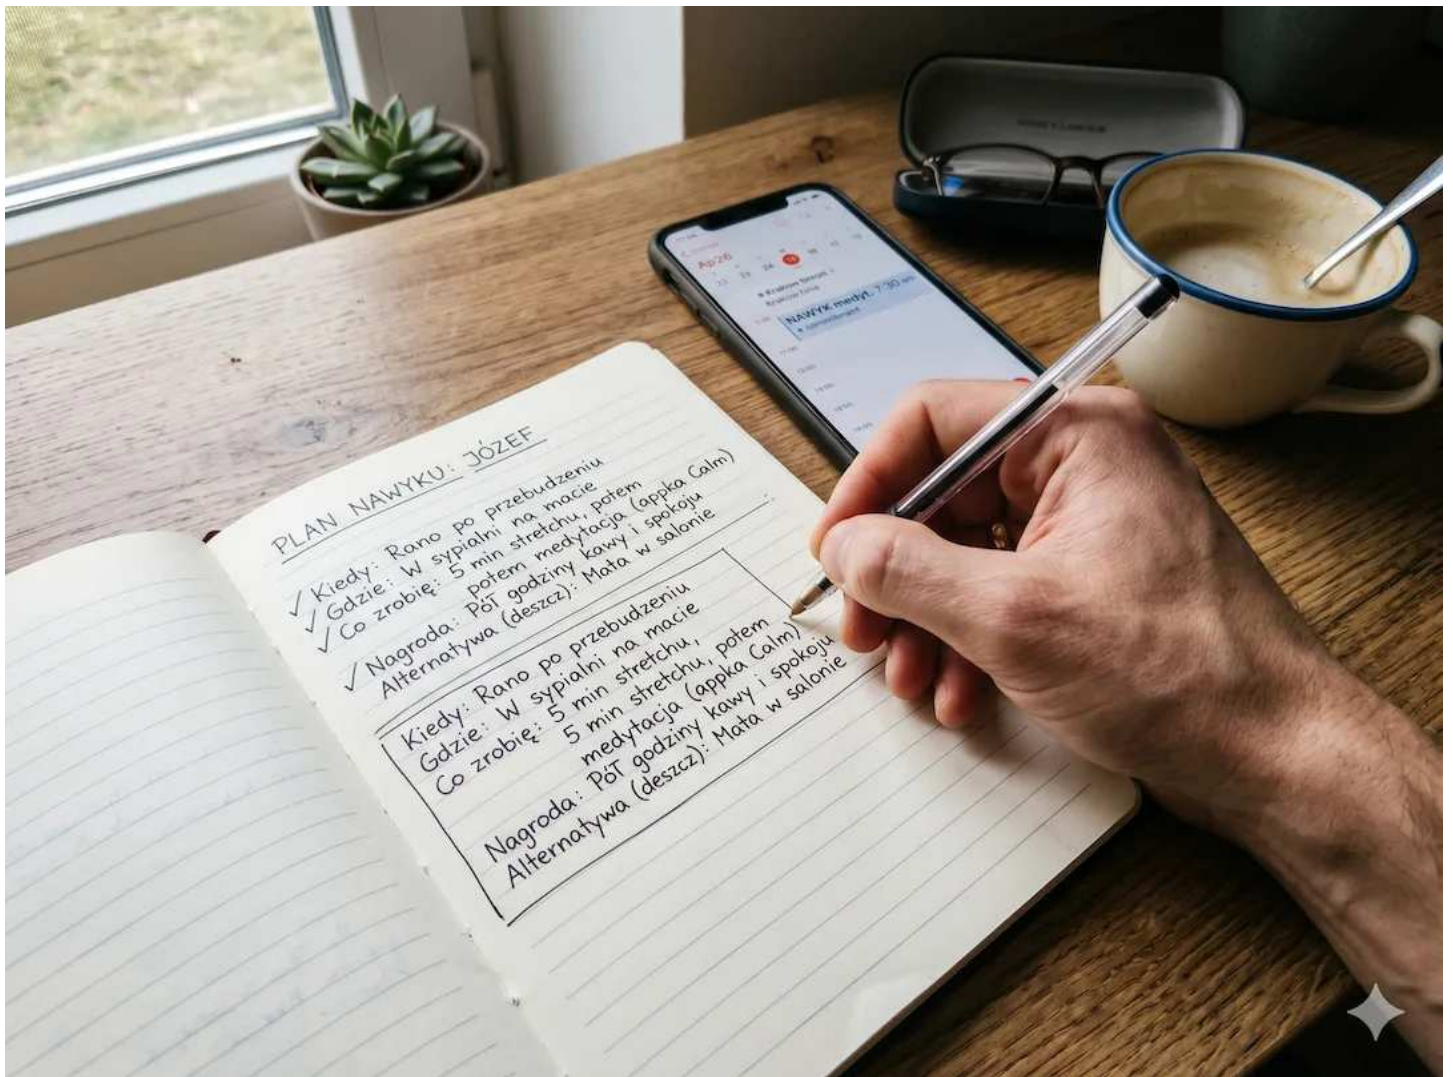 PLAN NAWYKU: JÓZEF
✓ Kiedy: Rano po przebudzeniu
✓ Gdzie: W sypialni na macie
✓ Co zrobię: 5 min stretchu, potem
potem medytacja (appka Calm)
✓ Nagroda: Pół godziny kawy i spokoju
Alternatywa (deszcz): Mata w salonie
Kiedy: Rano po przebudzeniu
Gdzie: W sypialni na macie
Co zrobię: 5 min stretchu,
5 min stretchu, potem
medytacja (appka Calm)
Nagroda: Pół godziny kawy i spokoju
Alternatywa (deszcz): Mata w salonie
Ap26
NAWYK medyt. 7:30 am